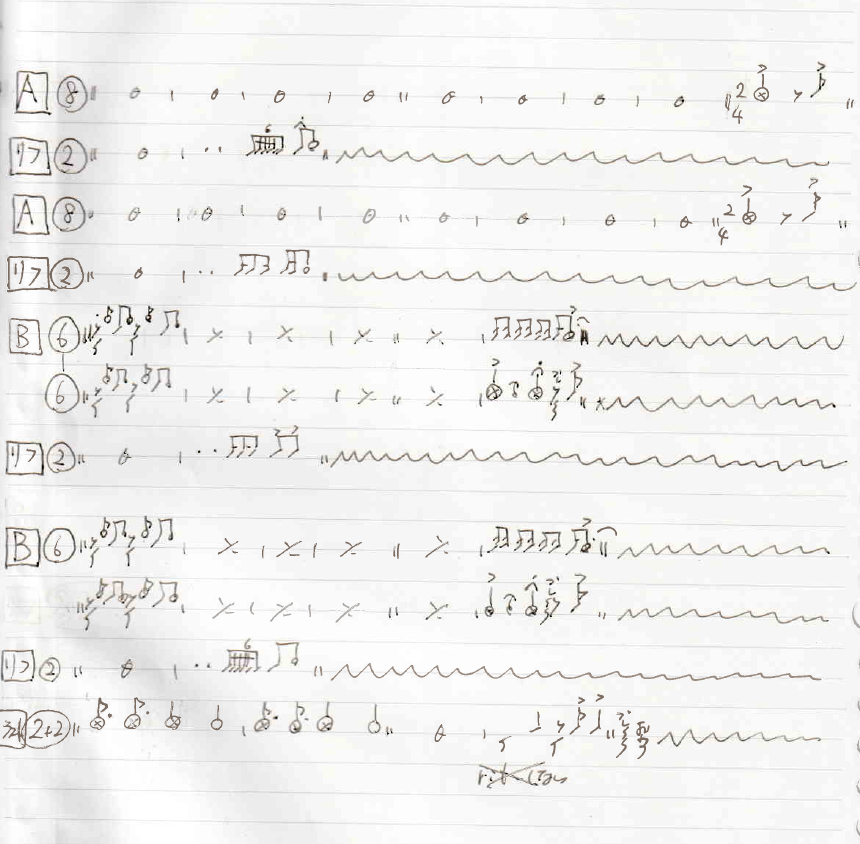 A 8 2/4
リフ 2 6
A 8 2/4
リフ 2
B 6
6
リフ 2
B 6
リフ 2 6
2+2